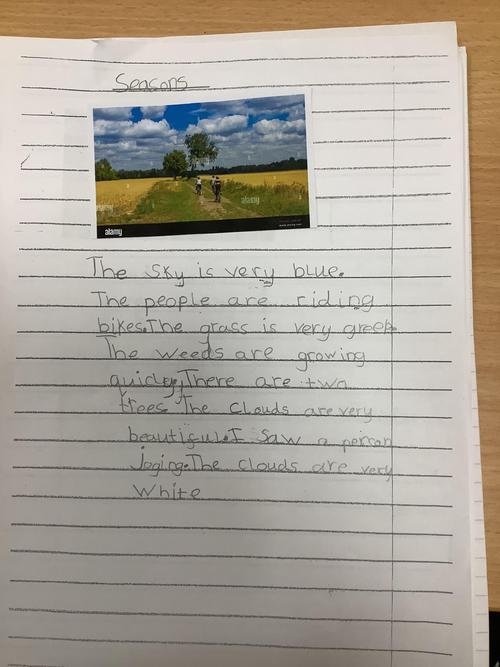 Seasons
alamy
alamy
The sky is very blue.
The people are riding
bikes.The grass is very green.
The weeds are growing
There are two
trees The clouds are very
beautiful.I saw a person
joging.The clouds are very
white